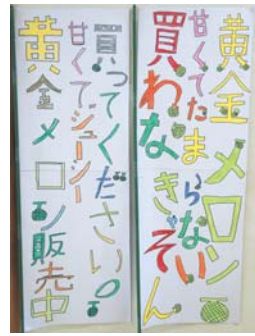 黄金メロン
甘くてたまらない
買わなきゃそん
買ってください。
甘くてジューシー
黄金メロン販売中